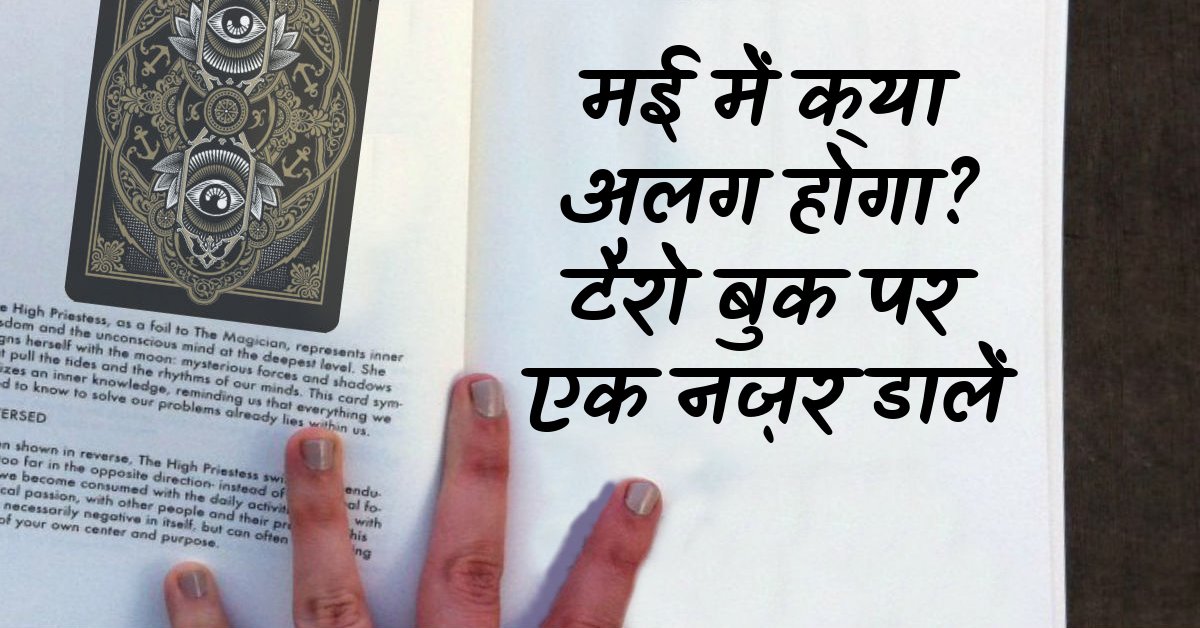 e High Priestess, as a foil to The Magician, represents inner
sdom and the unconscious mind at the deepest level. She
gns herself with the moon: mysterious forces and shadows
t pull the tides and the rhythms of our minds. This card sym-
izes an inner knowledge, reminding us that everything we
ed to know to solve our problems already lies within us.
ERSED
n shown in reverse, The High Priestess sw
oo far in the opposite direction- instead of endu-
we become consumed with the daily activit al fo-
cal passion, with other people and their pr with
necessarily negative in itself, but can often his
of your own center and purpose. ing
मई में क्या
अलग होगा?
टैरो बुक पर
एक नज़र डालें